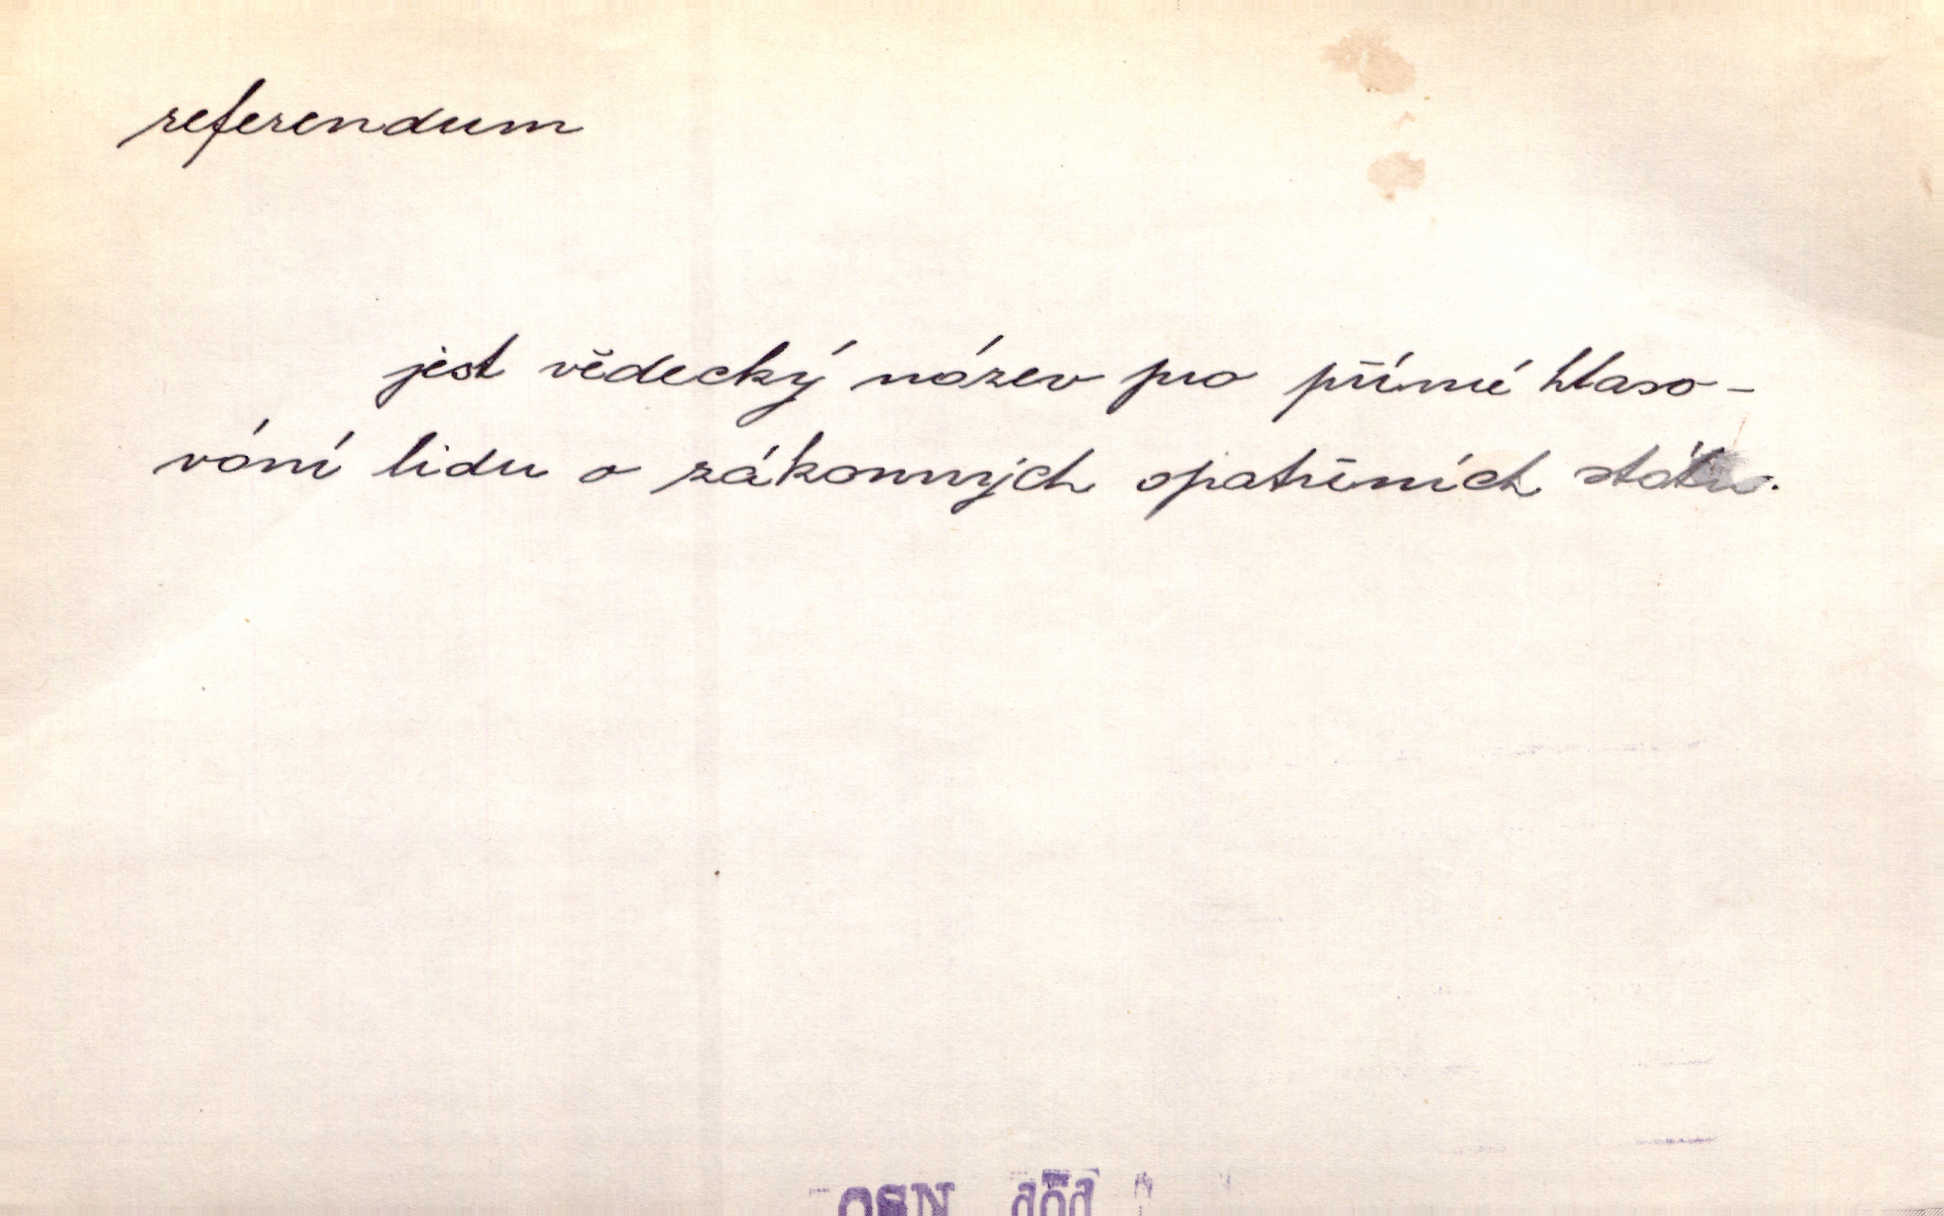 referendum
jest vědecký název pro přímé hlaso-
vání lidu o zákonných opatřeních státu.
OSN dod